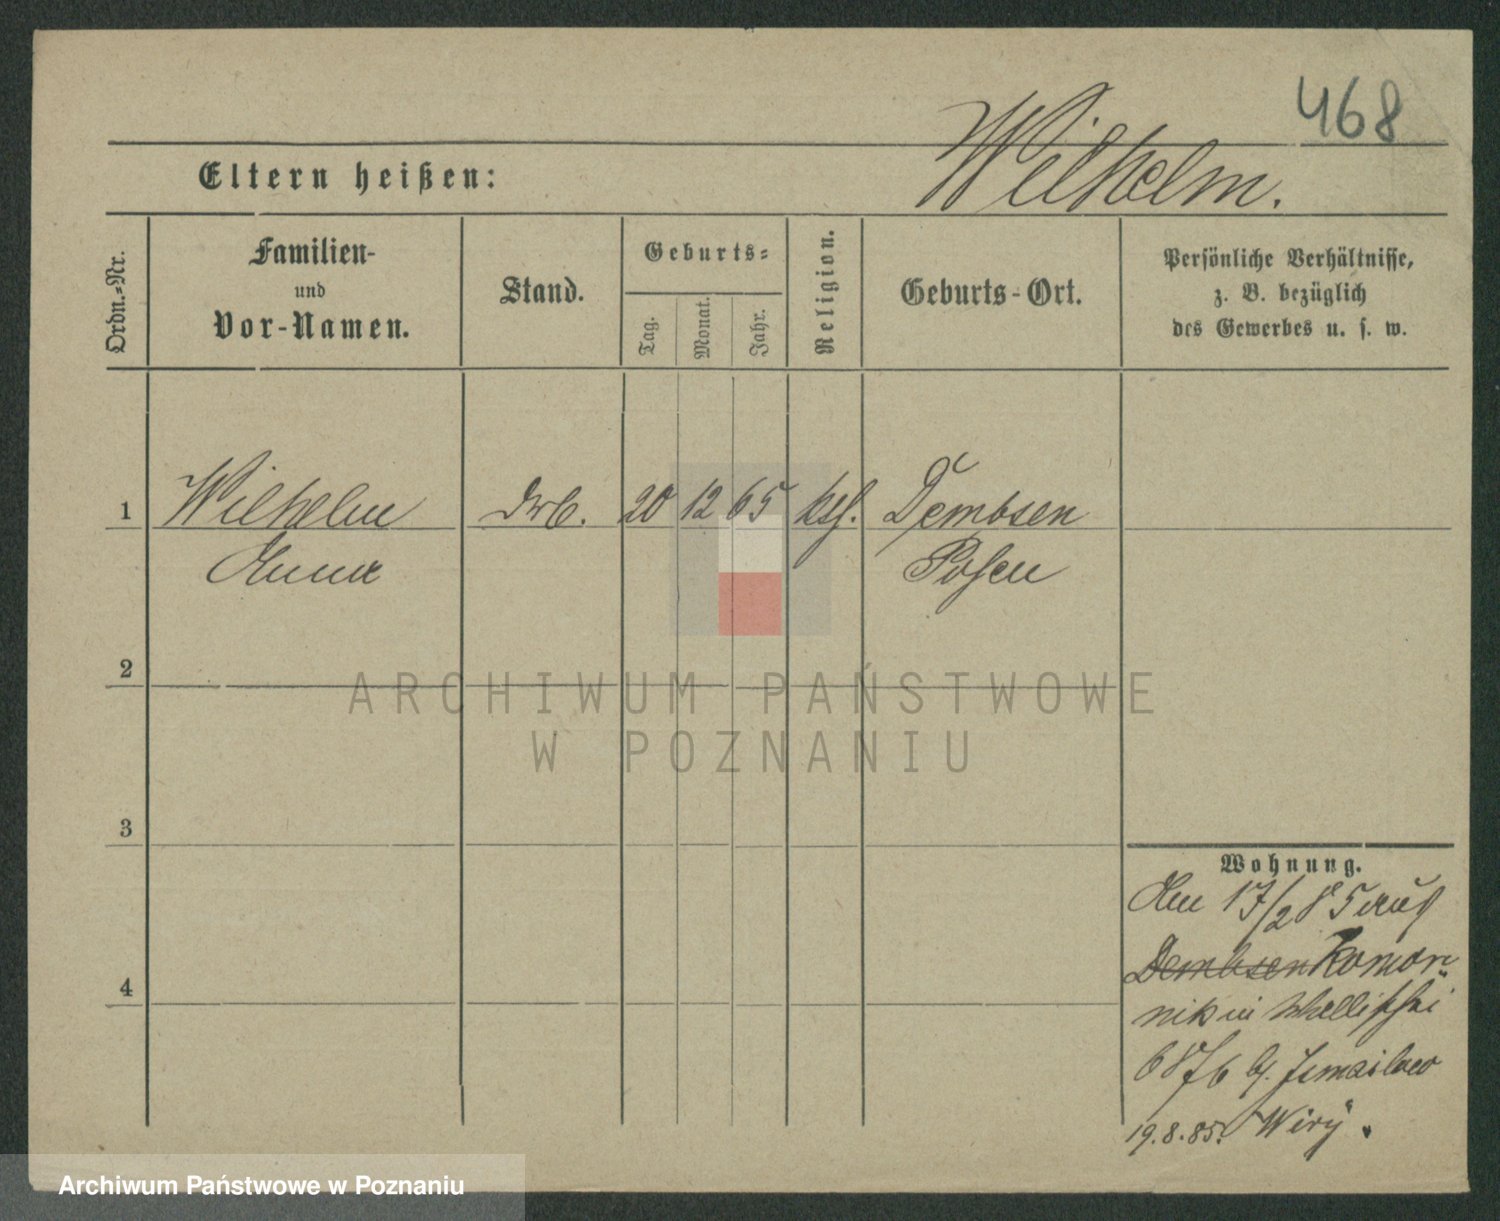 468
Wilhelm.
Eltern heißen:
Ordn.-Nr.
Familien-
und
Vor-Namen.
Stand.
Geburts-
Tag.
Monat.
Jahr.
Religion.
Geburts-Ort.
Persönliche Verhältnisse,
z. B. bezüglich
des Gewerbes u. s. w.
1 Wilhelm 20 12 65 kth. Dembsen
Anna Posen
2
ARCHIWUM PAŃSTWOWE
W POZNANIU
3
4
Wohnung.
Am 17/2 85 auf
Dembsen Komor-
nik
19.8.85. Wiry.
Archiwum Państwowe w Poznaniu